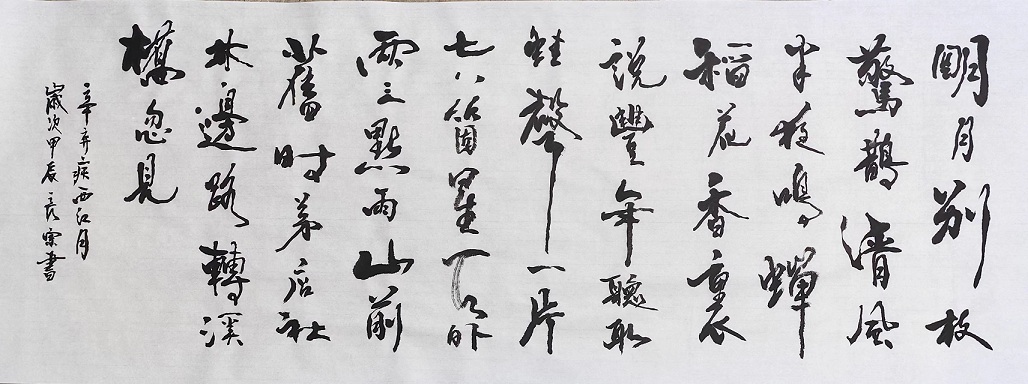 明月别枝
驚鵲清風
半夜鳴蟬
稻花香裏
說豐年聽取
蛙聲一片
七八個星天外
兩三點雨山前
舊時茅店社
林邊路轉溪
橋忽見
辛弃疾西江月
歲次甲辰書